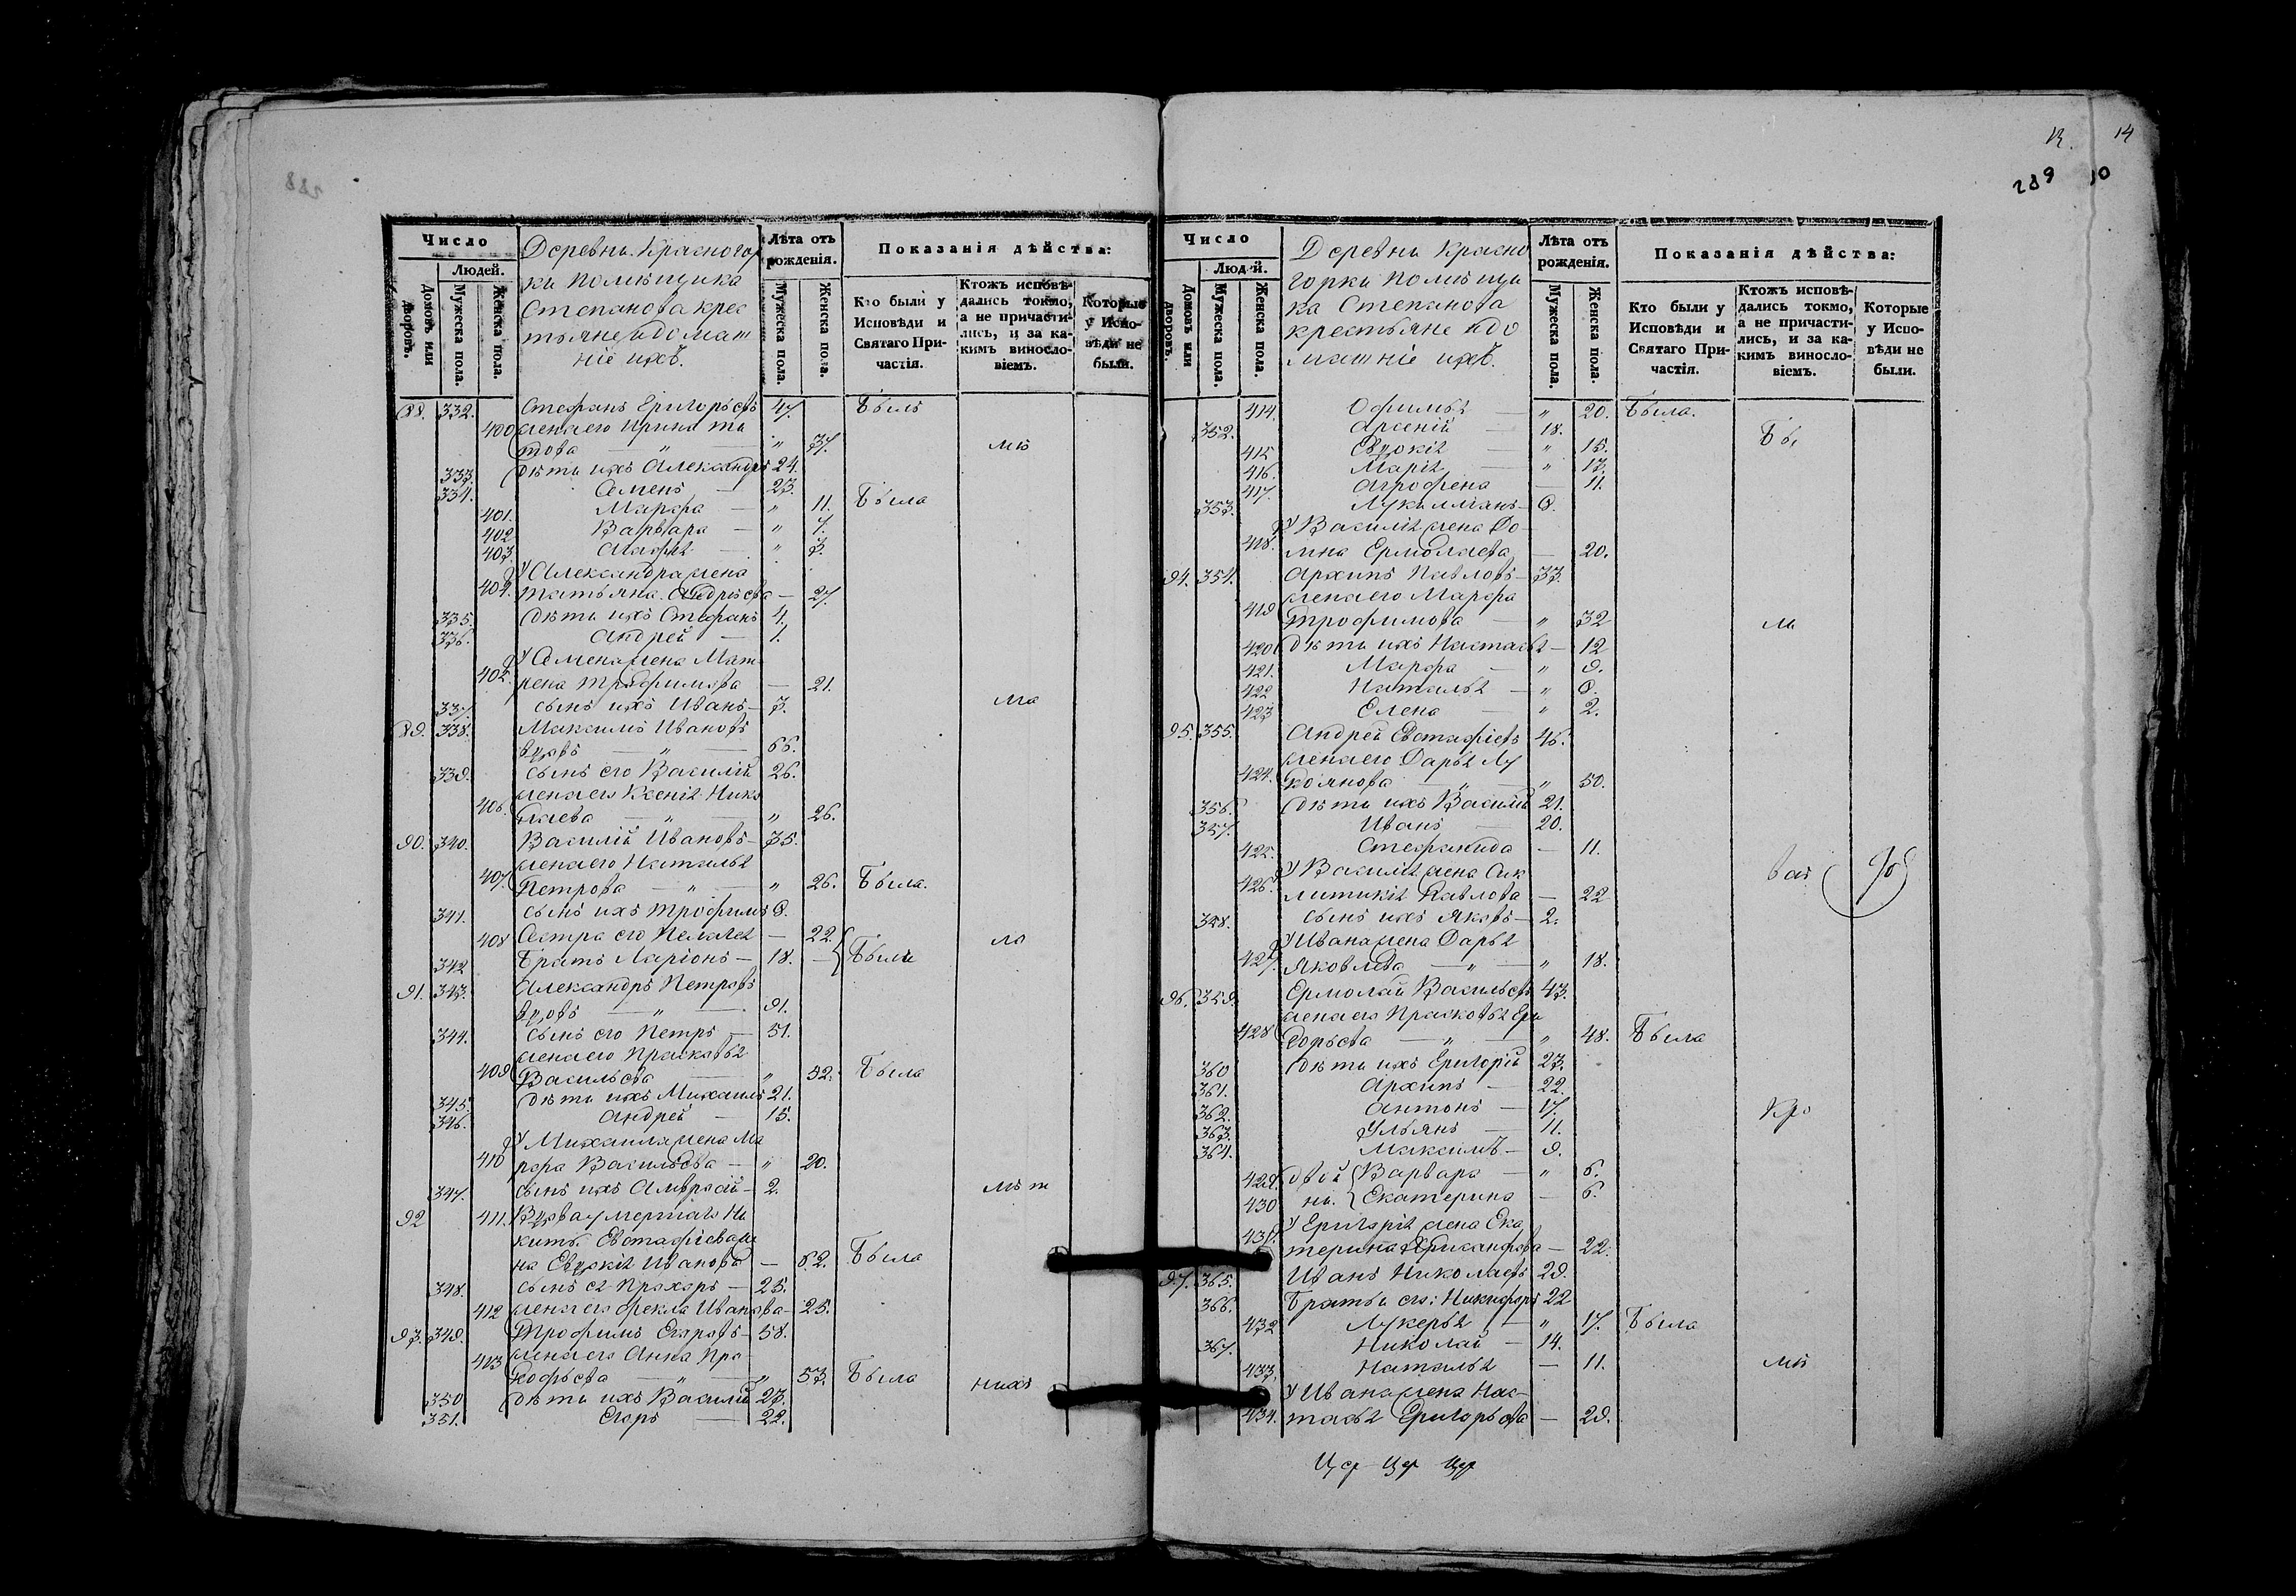 12. 14
289 10
288
Число
Людей.
Домовъ или дворовъ.
Мужеска пола.
Женска пола.
Деревни Красногор
ки помѣщика
Степанова крес
тьяне и домаш
ніе ихъ.
Лѣта отъ рожденія.
Мужеска пола.
Женска пола.
Показанія дѣйства:
Кто были у Исповѣди и Святаго Причастія.
Ктожъ исповѣдались токмо, а не причастились, и за какимъ винословіемъ.
Которые у Исповѣди не были.
88. 332. Стефанъ Григорьевъ 47. Былъ
400 жена его Ирина Ти
това — " — " 37. мю
333. дѣти ихъ Александръ 24.
334. Семенъ — 23.
401. Марфа — " 11. Была
402 Варвара — " 7.
403 Марфа — " 3.
У Александра жена
404. Татьяна Андреева — 27.
335. дѣти ихъ Стефанъ 4.
336. Андрей — 1.
У Семена жена Мат
405. рена Трофимова — 21.
337. сынъ ихъ Иванъ — 3. ма
89. 338. Максимъ Ивановъ
вдовъ — " — 66.
339. сынъ его Василій 26.
жена его Ксенія Нико
406. лаева — " — " 26.
90. 340. Василій Ивановъ — 35.
жена его Наталья
407. Петрова — " — " 26. Была.
341. сынъ ихъ Трофимъ 8.
408 Сестра его Пелагея — 22. ло
342 Братъ Ларіонъ — 18. — Были
91. 343. Александръ Петровъ
вдовъ — " — 91.
344. сынъ его Петръ — 51.
жена его Прасковья
409 Васильева — " 52. Была
345. дѣти ихъ Михаилъ 21.
346. Андрей — 15.
У Михаила жена Ма
410 рфа Васильева — " 20.
347. сынъ ихъ Амвросій — 2. лѣт
92 411. Вдова умершаго Ни
киты Евстафіева же
на Евдокія Иванова — 62. Была
348. сынъ ея Прохоръ — 25.
412 жена его Фекла Иванова — 25.
93. 349. Трофимъ Егоровъ — 58.
жена его Анна Про
413 кофьева — " — " 53. Была нихъ
350 дѣти ихъ Василій 23.
351. Егоръ — 22.
Число
Людей.
Домовъ или дворовъ.
Мужеска пола.
Женска пола.
Деревни Красно
горки помѣщи
ка Степанова
крестьяне и до
машніе ихъ.
Лѣта отъ рожденія.
Мужеска пола.
Женска пола.
Показанія дѣйства:
Кто были у Исповѣди и Святаго Причастія.
Ктожъ исповѣдались токмо, а не причастились, и за какимъ винословіемъ.
Которые у Исповѣди не были.
414. Офимья — " 20. Была.
352. Арсеній — 18. Бы
415 Евдокія — " 15.
416. Марія — " 13.
417. Агрофена — 11.
353. Лукиліянъ — 8.
У Василія жена До
418. мна Ермолаева — 20.
94. 354. Архипъ Павловъ — 33.
жена его Марфа
419 Трофимова — " 32 ли
420 дѣти ихъ Настасья — 12
421. Марфа — " 9.
422 Наталья — " 8.
423 Елена — " 2.
95. 355. Андрей Евстафіевъ 46.
жена его Дарья Лу
424. кьянова — " — " 50.
356. дѣти ихъ Василій 21.
357. Иванъ — 20.
425. Стефанида — 11.
У Василія жена Сик
426. литикія Павлова — 22 вай
358. сынъ ихъ Яковъ — 2.
У Ивана жена Дарья
427. Яковлева — " — " 18.
96. 359. Ермолай Васильевъ 43.
жена его Прасковья Гри
428 горьева — " — " 48. Была
360 дѣти ихъ Григорій 23.
361. Архипъ — 22.
362. Антонъ — 17. Кро
363. Ульянъ — 11.
364. Максимъ — 9.
429. двой { Варвара — " 6.
430 ни. { Екатерина — 6.
У Григорія жена Ека
431. терина Хрисанфова — 22.
97. 365. Иванъ Николаевъ 29.
366. Братьи его: Никифоръ 22
432 Лукерья — " 17. Была
367. Николай — 14.
433. Наталья — 11. мѣ
У Ивана жена Нас
434. тасья Григорьева — 29.